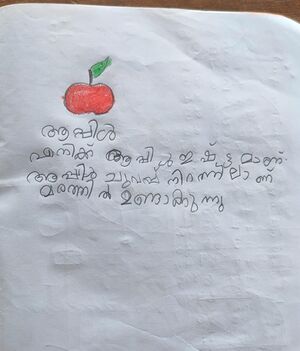 ആപ്പിൾ
എനിക്ക് ആപ്പിൾ ഇഷ്ട്ട മാണ്.
ആപ്പിൾ ചുവപ്പ് നിറത്തിലാ ണ്
മരത്തിൽ ഉണ്ടാകുന്നു